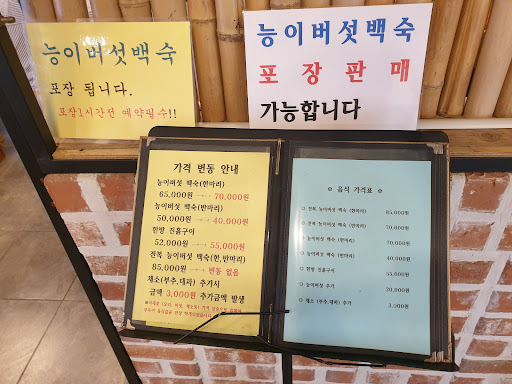 능이버섯백숙
포장 됩니다.
포장1시간전 예약필수!!
능이버섯백숙
포장판매
가능합니다
가격 변동 안내
능이버섯 백숙(한마리)
65,000원 → 70,000원
능이버섯 백숙(반마리)
50,000원 → 40,000원
한방 진흙구이
52,000원 → 55,000원
전복 능이버섯 백숙(한,반마리)
85,000원 → 변동 없음
채소(부추,대파) 추가시
금액 3,000원 추가금액 발생
음식 가격표
전복 능이버섯 백숙 85,000원
전복 능이버섯 백숙 70,000원
능이버섯 백숙 70,000원
능이버섯 백숙 40,000원
한방 진흙구이 55,000원
능이버섯 추가 20,000원
채소 (부추,대파) 추가 3,000원